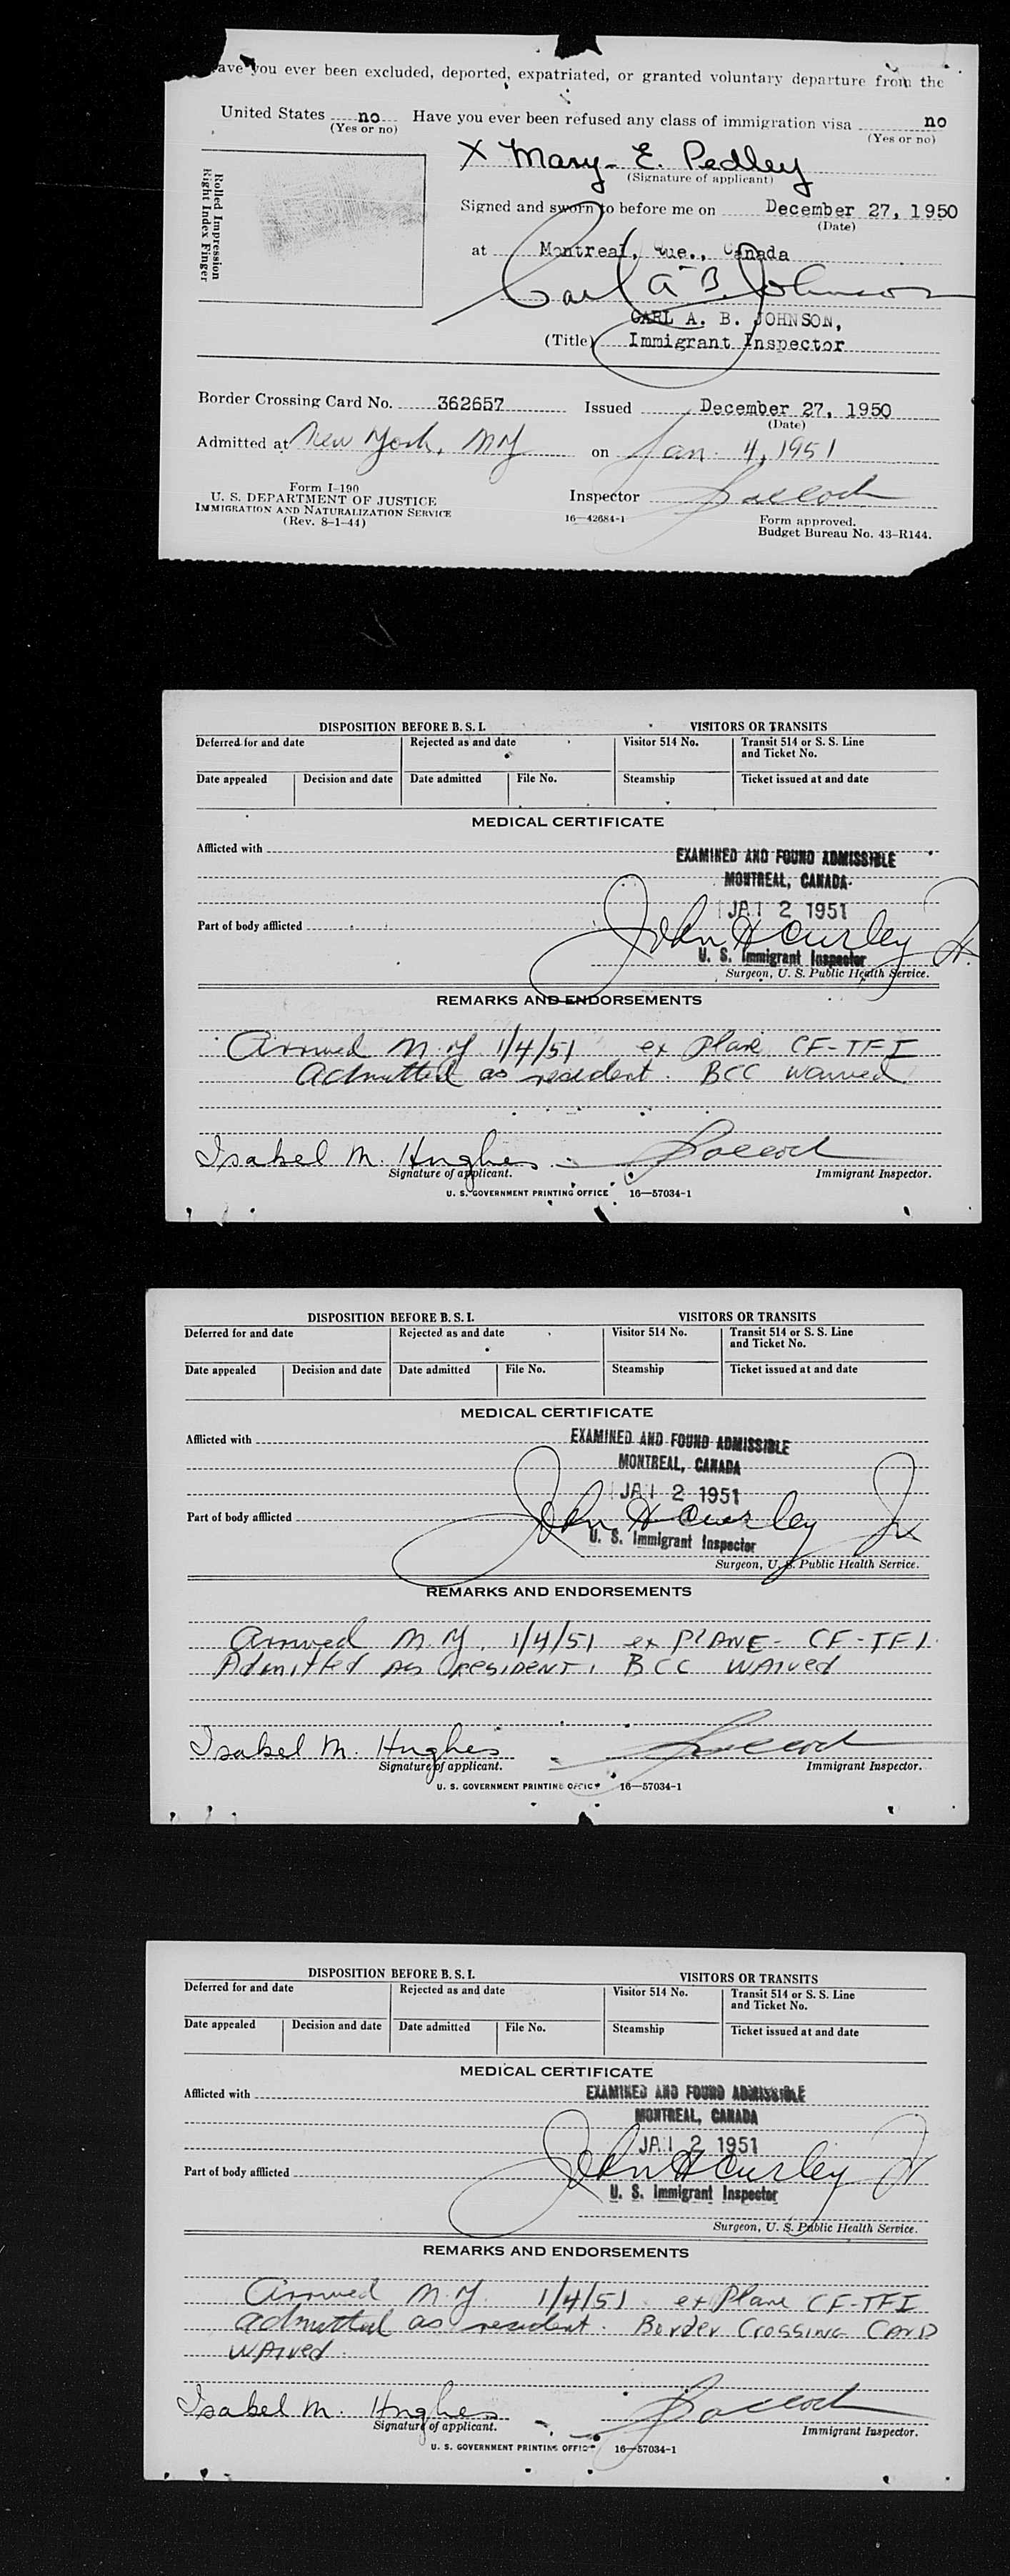 ave you ever been excluded, deported, expatriated, or granted voluntary departure from the
United States no Have you ever been refused any class of immigration visa no
(Yes or no) (Yes or no)
X Mary E. Pedley
(Signature of applicant)
Rolled Impression
Right Index Finger
Signed and sworn to before me on December 27, 1950
(Date)
at Montreal, Que., Canada
Carl A B Johnson
CARL A. B. JOHNSON,
(Title) Immigrant Inspector
Border Crossing Card No. 362657 Issued December 27, 1950
(Date)
Admitted at New York, NY on Jan. 4, 1951
Form I-190
U. S. DEPARTMENT OF JUSTICE
IMMIGRATION AND NATURALIZATION SERVICE
(Rev. 8-1-44)
Inspector
16—42684-1
Form approved.
Budget Bureau No. 43-R144.
DISPOSITION BEFORE B. S. I. VISITORS OR TRANSITS
Deferred for and date Rejected as and date Visitor 514 No. Transit 514 or S. S. Line
and Ticket No.
Date appealed Decision and date Date admitted File No. Steamship Ticket issued at and date
MEDICAL CERTIFICATE
Afflicted with
EXAMINED AND FOUND ADMISSIBLE
MONTREAL, CANADA
JAN 2 1951
Part of body afflicted John H Curley Jr.
U. S. Immigrant Inspector
Surgeon, U. S. Public Health Service.
REMARKS AND ENDORSEMENTS
Arrived N.Y 1/4/51 ex Plane CF-TFI
admitted as resident. BCC waived
Isabel M. Hughes
Signature of applicant. Immigrant Inspector.
U. S. GOVERNMENT PRINTING OFFICE 16—57034-1
DISPOSITION BEFORE B. S. I. VISITORS OR TRANSITS
Deferred for and date Rejected as and date Visitor 514 No. Transit 514 or S. S. Line
and Ticket No.
Date appealed Decision and date Date admitted File No. Steamship Ticket issued at and date
MEDICAL CERTIFICATE
Afflicted with
EXAMINED AND FOUND ADMISSIBLE
MONTREAL, CANADA
JAN 2 1951
Part of body afflicted John H Curley Jr
U. S. Immigrant Inspector
Surgeon, U. S. Public Health Service.
REMARKS AND ENDORSEMENTS
Arrived N.Y. 1/4/51 ex PLANE - CF-TFI.
Admitted As RESIDENT. BCC WAIved
Isabel M. Hughes
Signature of applicant. Immigrant Inspector.
U. S. GOVERNMENT PRINTING OFFICE 16—57034-1
DISPOSITION BEFORE B. S. I. VISITORS OR TRANSITS
Deferred for and date Rejected as and date Visitor 514 No. Transit 514 or S. S. Line
and Ticket No.
Date appealed Decision and date Date admitted File No. Steamship Ticket issued at and date
MEDICAL CERTIFICATE
Afflicted with
EXAMINED AND FOUND ADMISSIBLE
MONTREAL, CANADA
JAN 2 1951
Part of body afflicted John H Curley Jr
U. S. Immigrant Inspector
Surgeon, U. S. Public Health Service.
REMARKS AND ENDORSEMENTS
Arrived N.Y. 1/4/51 ex Plane CF-TFI
admitted as resident. Border Crossing Card
WAIved.
Isabel M. Hughes
Signature of applicant. Immigrant Inspector.
U. S. GOVERNMENT PRINTING OFFICE 16—57034-1